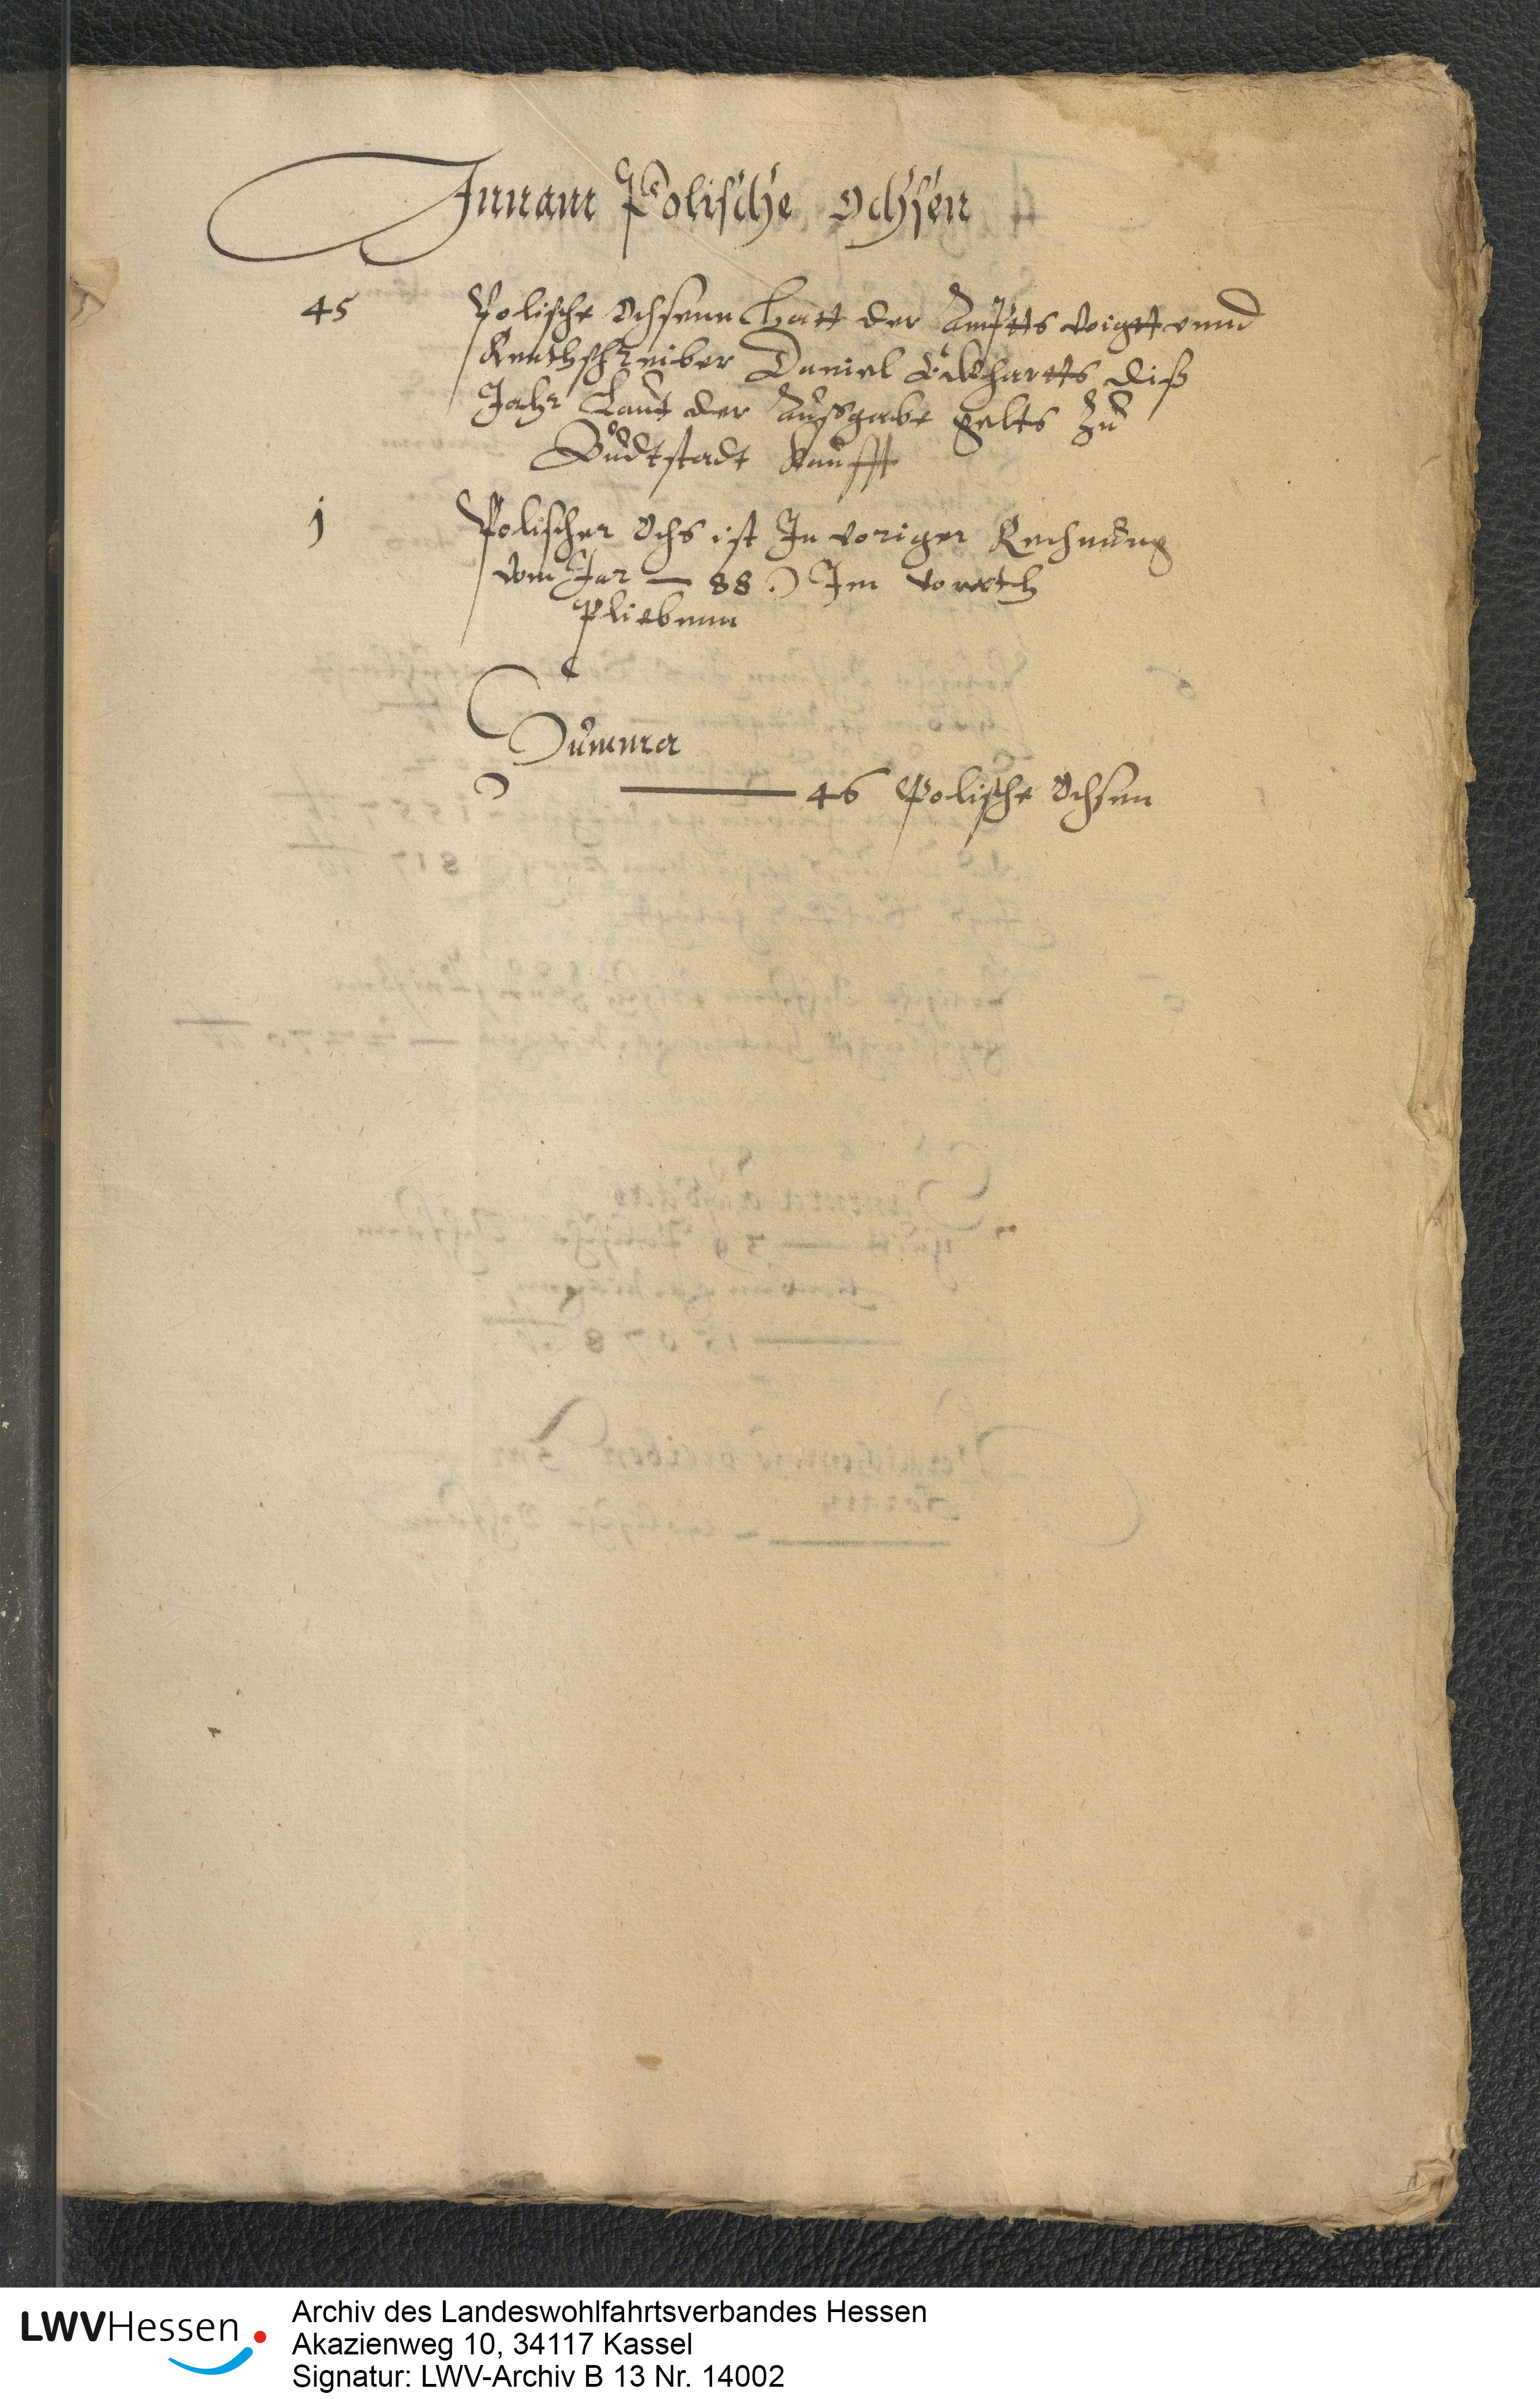 Innam Polische Ochsen
45 Polische Ochsenn hatt der Ampts Voigtt vnnd
Renthschreiber Daniel Eckhartts diß
Jahr Laut der Außgabe gelts Zu
Buedtstadt kaufft
j Polischer Ochs ist In voriger Rechnung
vom Jar — 88 Im vorrath
plieben
Summa
— 46 Polische Ochsen
LWVHessen
Archiv des Landeswohlfahrtsverbandes Hessen
Akazienweg 10, 34117 Kassel
Signatur: LWV-Archiv B 13 Nr. 14002